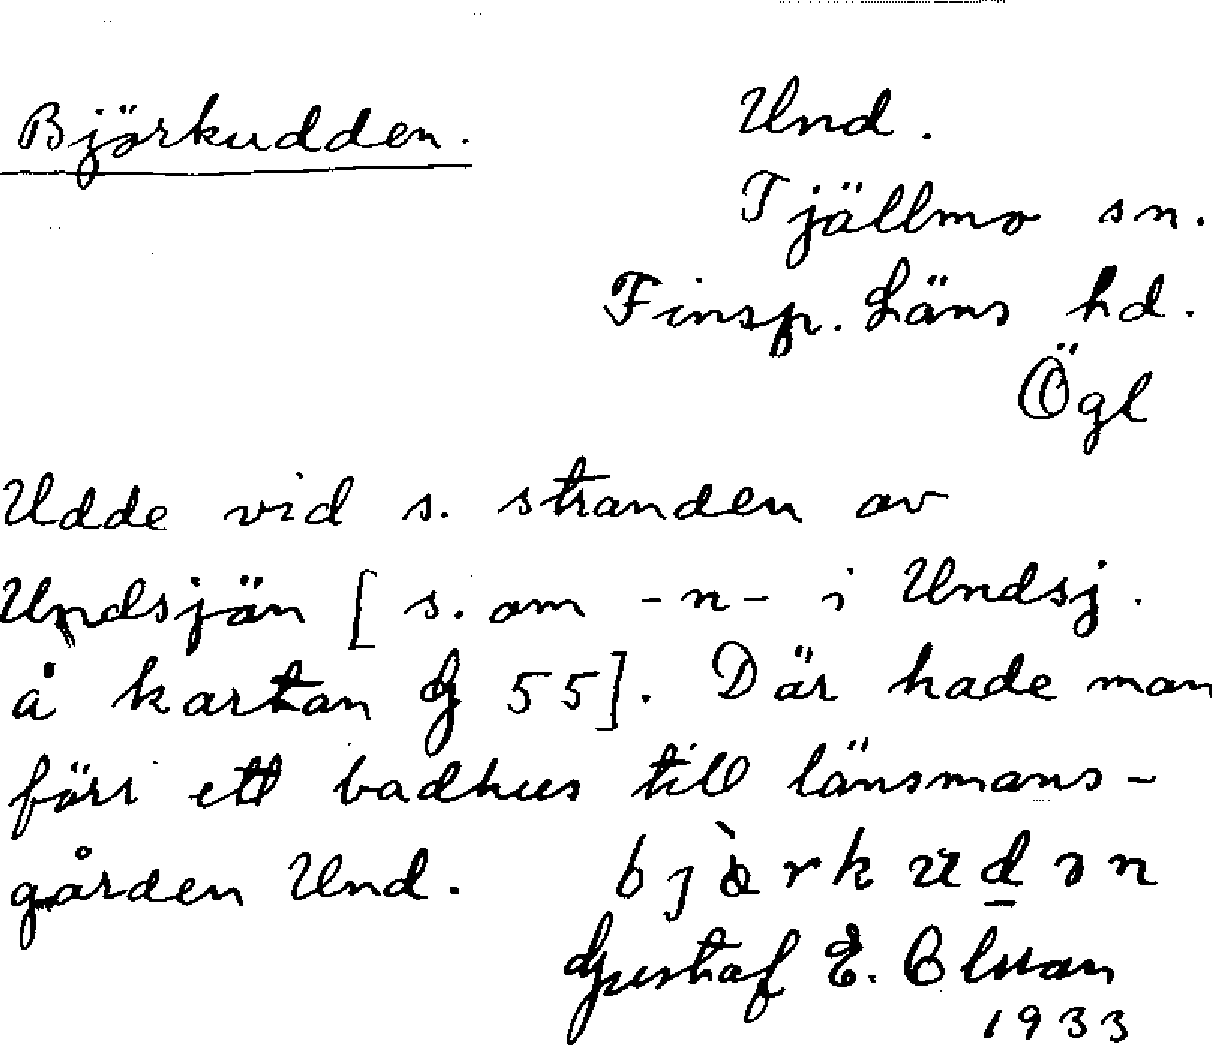 Björkudden.
Und.
Tjällmo sn.
Finsp. Läns hd.
Ögl
Udde vid s. stranden av
Undsjön [ s. om -n- i Undsj.
å kartan G 55]. Där hade man
förr ett badhus till länsmans-
gården Und.
Gustaf E.
1933